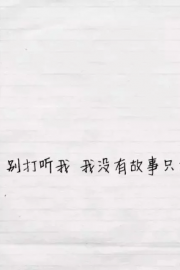 别打听我 我没有故事只